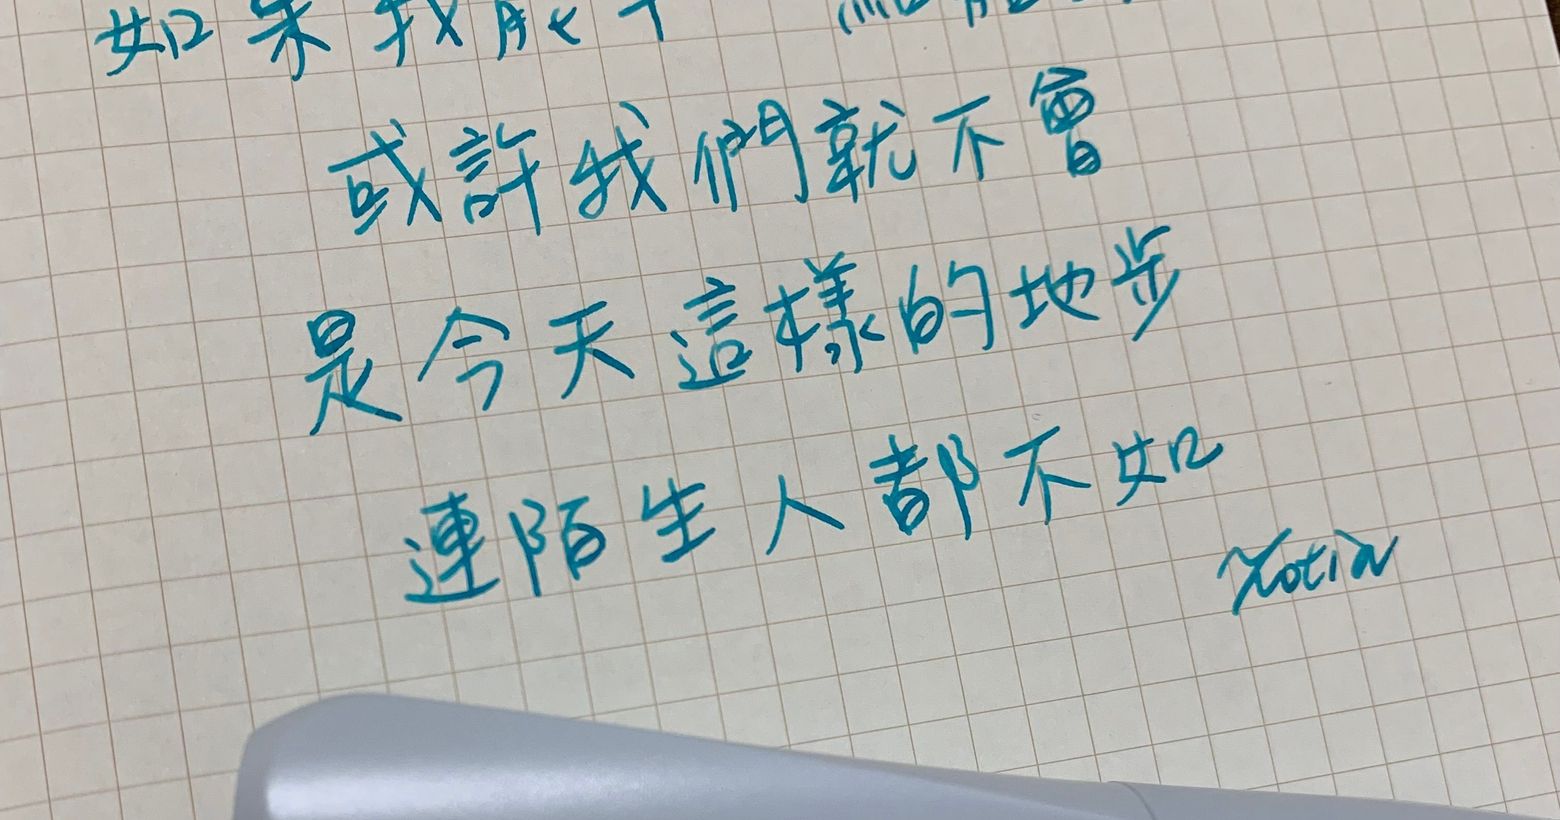 如果我
或許我們就不會
是今天這樣的地步
連陌生人都不如